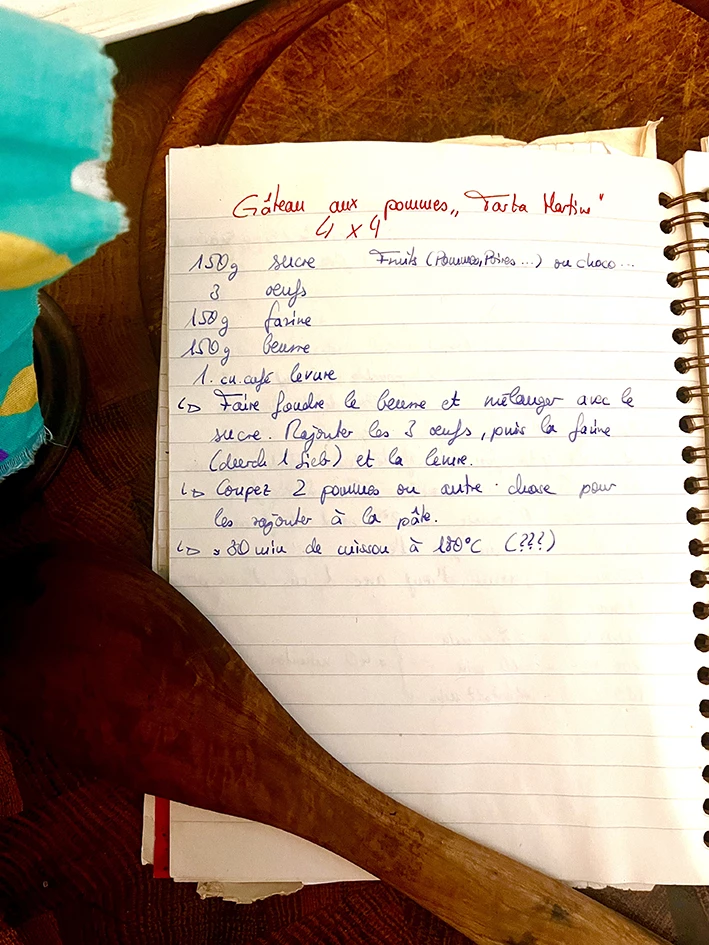 Gâteau aux pommes „Tarta Martine"
4 x 4
150g sucre Fruits (Pommes, Poires ...) ou choco ...
3 œufs
150g farine
150g beurre
1. cu. café levure
↳ Faire fondre le beurre et mélanger avec le
sucre. Rajouter les 3 œufs, puis la farine
(durch 1 Sieb) et la levure.
↳ Coupez 2 pommes ou autre chose pour
les rajouter à la pâte.
↳ ≈ 30 min de cuisson à 180°C (???)